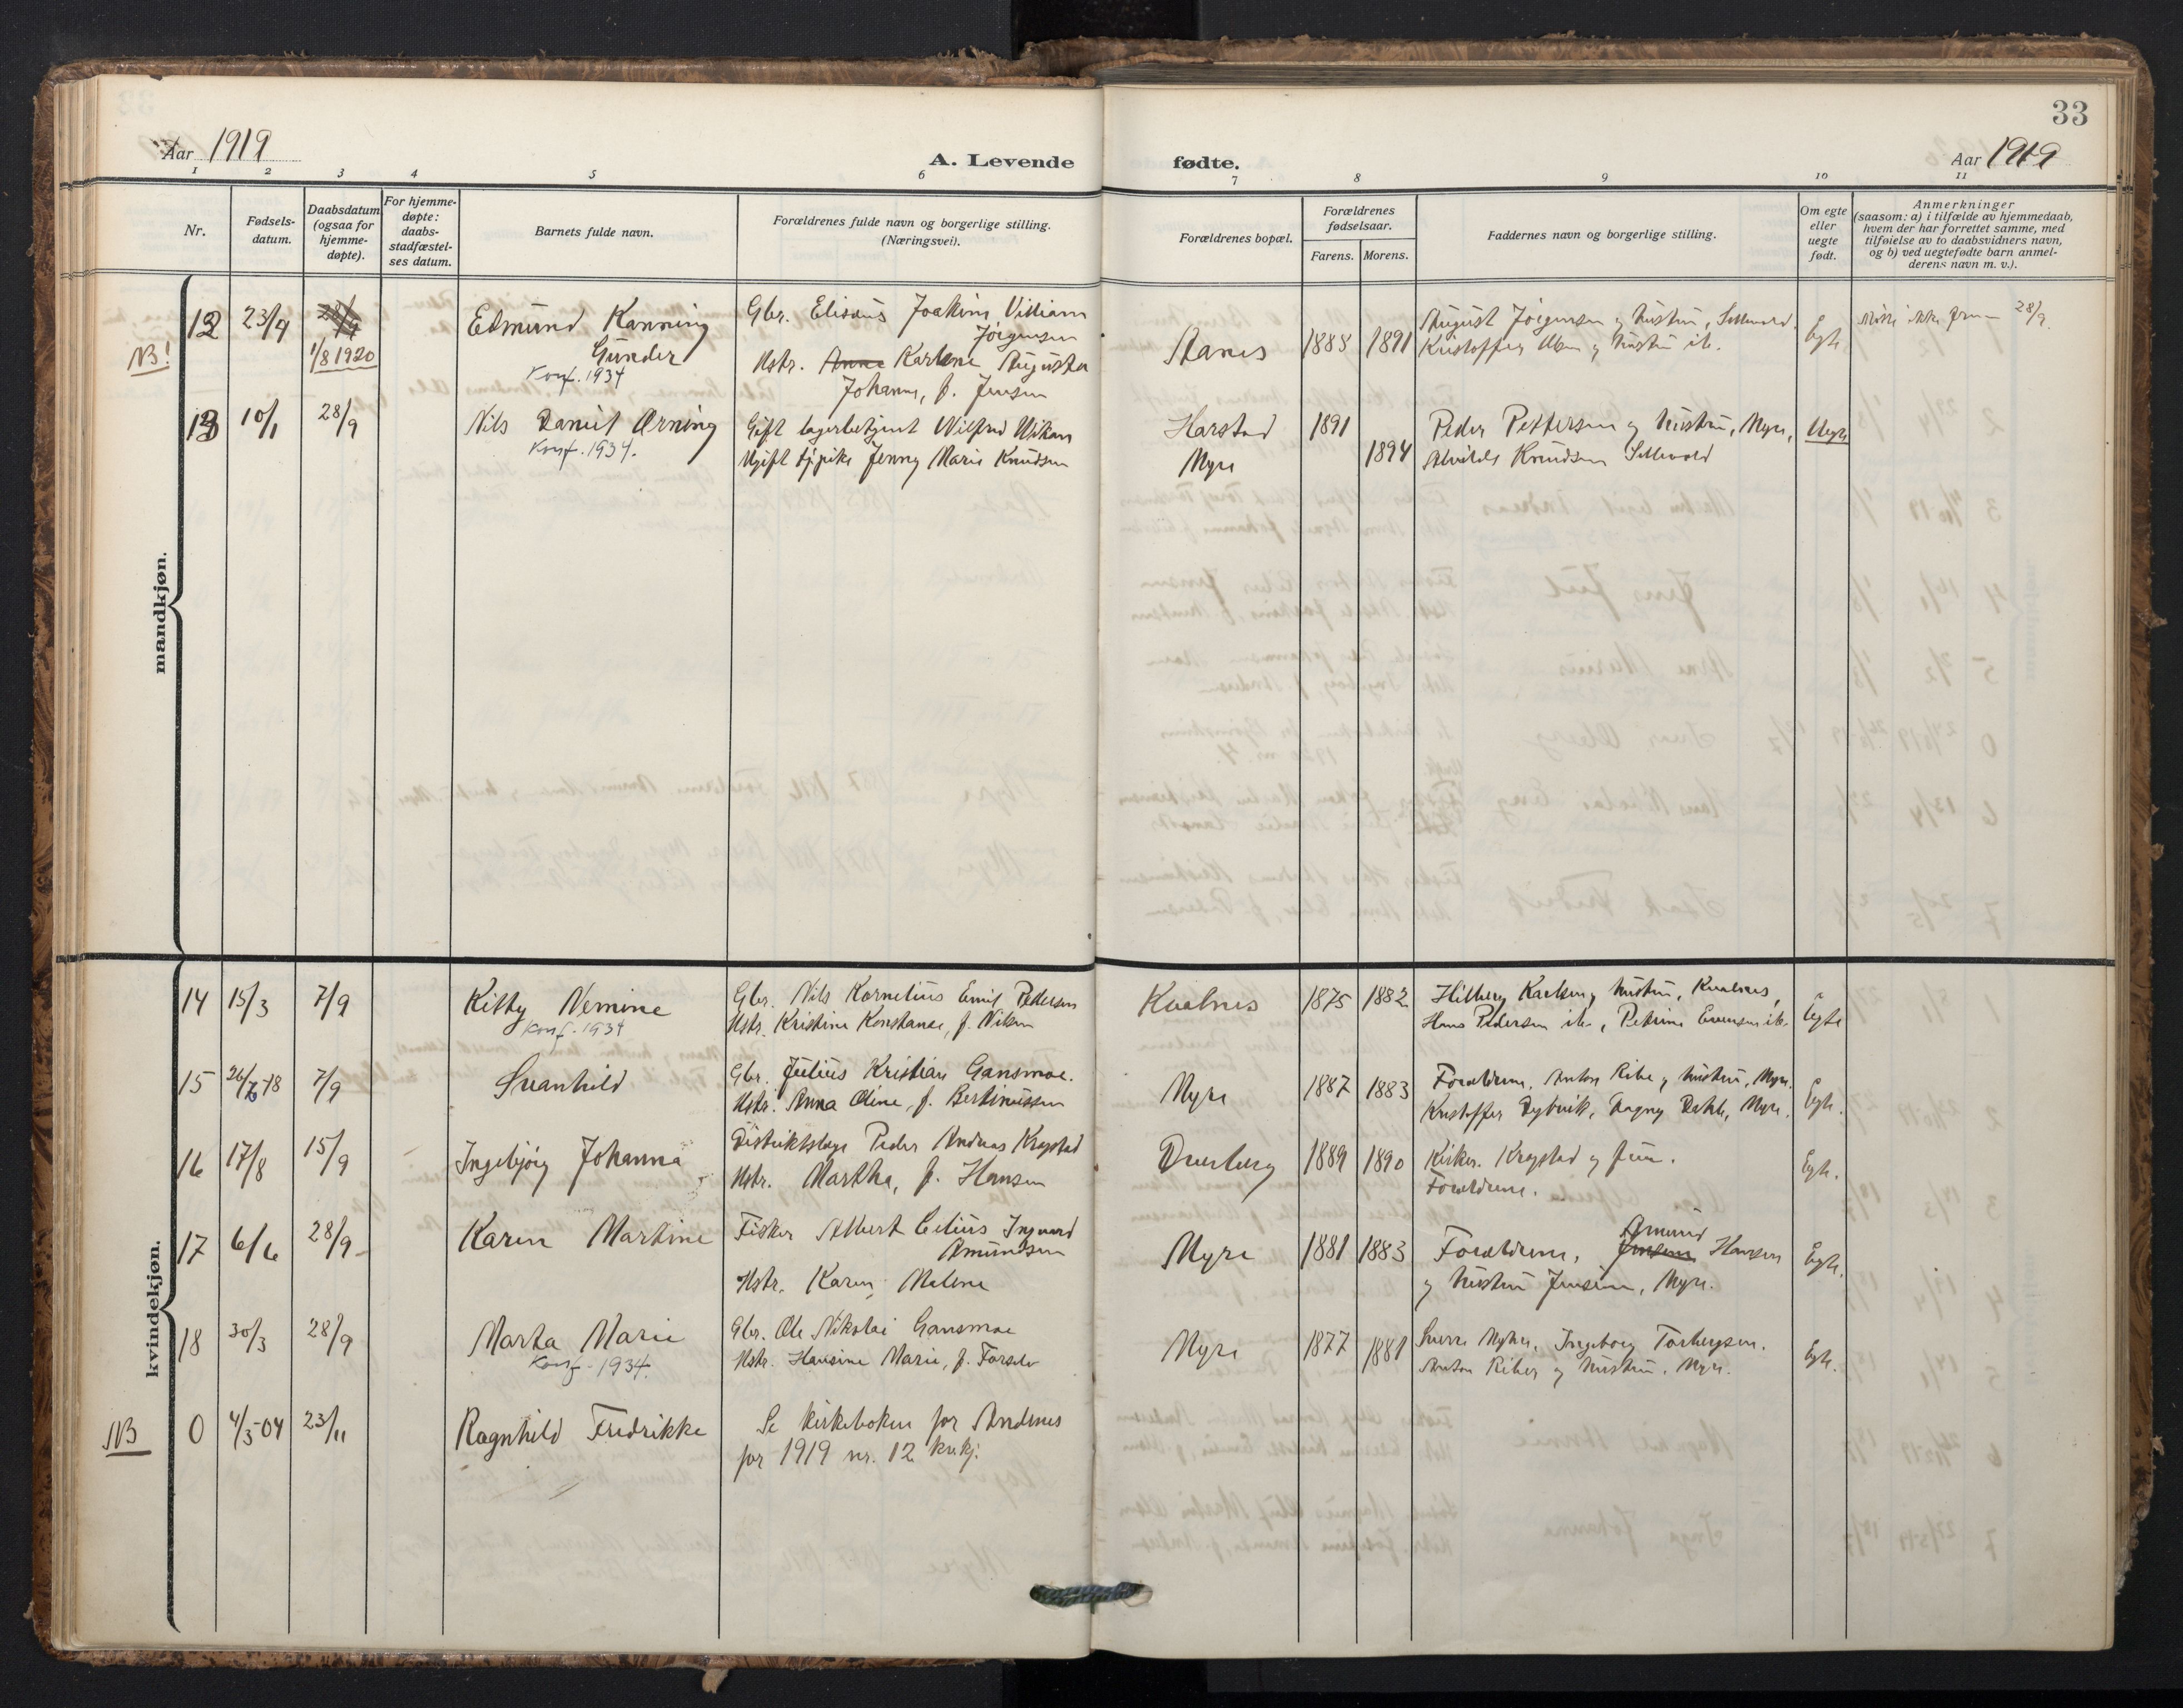 33
Aar 1919
A. Levende fødte.
Aar 1919
1 2 3 4 5 6 7 8 9 10 11
Nr.
Fødsels-
datum.
Daabsdatum
(ogsaa for
hjemme-
døpte).
For hjemme-
døpte:
daabs-
stadfæstel-
ses datum.
Barnets fulde navn.
Forældrenes fulde navn og borgerlige stilling.
(Næringsvei).
Forældrenes bopæl.
Forældrenes
fødselsaar.
Farens. Morens.
Faddernes navn og borgerlige stilling.
Om egte
eller
uegte
født.
Anmerkninger
(saasom: a) i tilfælde av hjemmedaab,
hvem der har forrettet samme, med
tilføielse av to daabsvidners navn,
og b) ved uegtefødte barn anmel-
derens navn m. v.).
mandkjøn.
NB!
12 23/4 28/9
1/8 1920
Edmund Kanning
Gunder
Konf. 1934
Gbr. Elisæus Joakim Viliam
Jörgensen
Hstr. Anna Karlene Augusta
Johanna, f. Jensen
Stanes 1888 1891
August Jörgensen og hustru,
Kristoffer Olsen og hustru ib.
Egte
Møtte ikke frem 28/9
13 10/1 28/9
Nils Daniel Ørning
Konf. 1934.
Gift lagerbetjent Wilfred Wikan
Ugift tjpike Jenny Marie Knudsen
Harstad 1891
Myre 1894
Peder Pettersen og hustru, Myre,
Alvilde Knudsen
Uegte
kvindekjøn.
14 15/3 7/9
Kitty Nemine
Konf. 1934
Gbr. Nils Kornelius Emil Pedersen
Hstr. Kristine Konstanse, f. Nilsen
Kvalnes 1875 1882
Hilberg Karlsen og hustru, Kvalnes,
Hans Pedersen ib., Petrine Evensen ib.
Egte
15 26/6-18 7/9
Svanhild
Gbr. Julius Kristian Gansmoe.
Hstr. Anna Oline, f. Bertinussen
Myre 1887 1883
Forældrene, Anton Riber og hustru, Myre.
Kristoffer Dybvik, Dagny Dahle, Myre.
Egte.
16 17/8 15/9
Ingebjörg Johanna
Distriktslæge Peder Andreas Kragstad
Hstr. Martha, f. Hansen
Dverberg 1889 1890
Kirkes. Kragstad og frue.
Forældrene.
Egte.
17 6/6 28/9
Karen Martine
Fisker Albert Edius Ingvard
Amundsen
Hstr. Karen Malene
Myre 1881 1883
Forældrene, Jensen Amund Hansen
og hustru Jensine, Myre.
Egte.
18 30/3 28/9
Marta Marie
Konf. 1934.
Gbr. Ole Nikolai Gansmoe
Hstr. Hansine Marie, f. Forselv
Myre 1877 1881
Sverre Myhre, Ingeborg Torbergsen.
Anton Riber og hustru, Myre.
Egte.
NB
0 4/5-04 23/11
Ragnhild Fredrikke
Se kirkeboken for Andenes
for 1919 nr. 12 kv.kj.